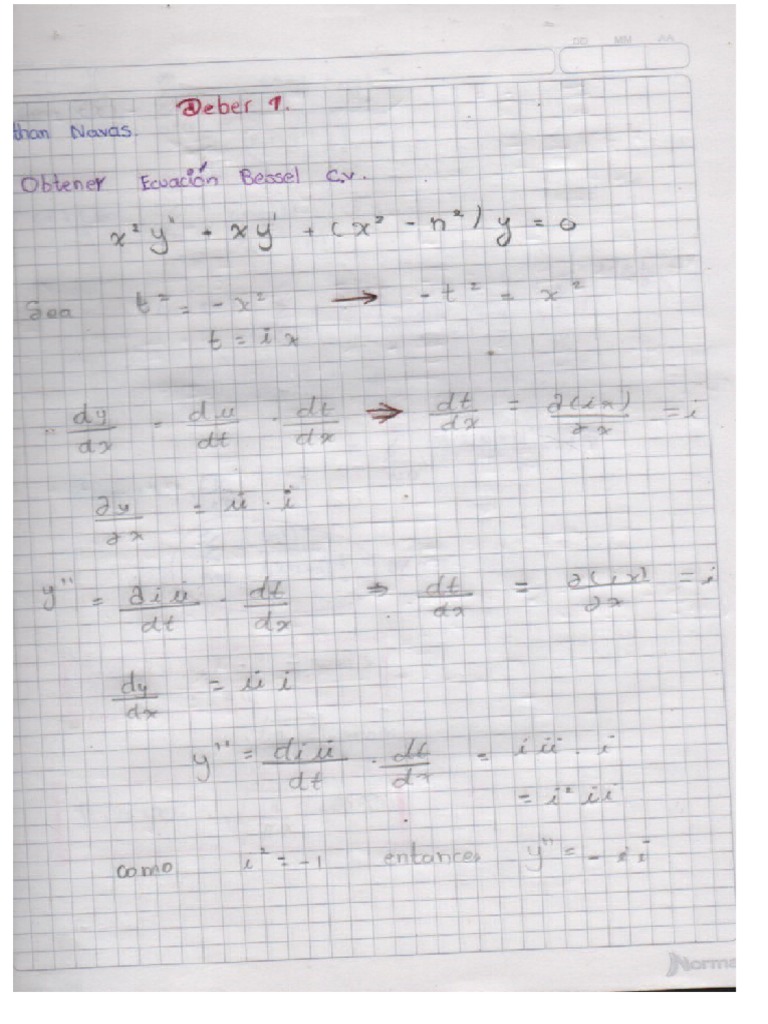 DD MM AA
Deber 1.
than Navas.
Obtener Ecuación Bessel C.V.
x² y'' + xy' + (x² - n²) y = 0
Sea t² = - x² → - t² = x²
t = i x
dy/dx = du/dt · dt/dx ⇒ dt/dx = ∂(ix)/∂x = i
∂y/∂x = u̇ · i
y'' = ∂iu̇/dt · dt/dx ⇒ dt/dx = ∂(ix)/∂x = i
dy/dx = u̇ i
y'' = diu̇/dt · dt/dx = i ü · i
= i² ü
como i² = -1 entonces y'' = - ü
Norma